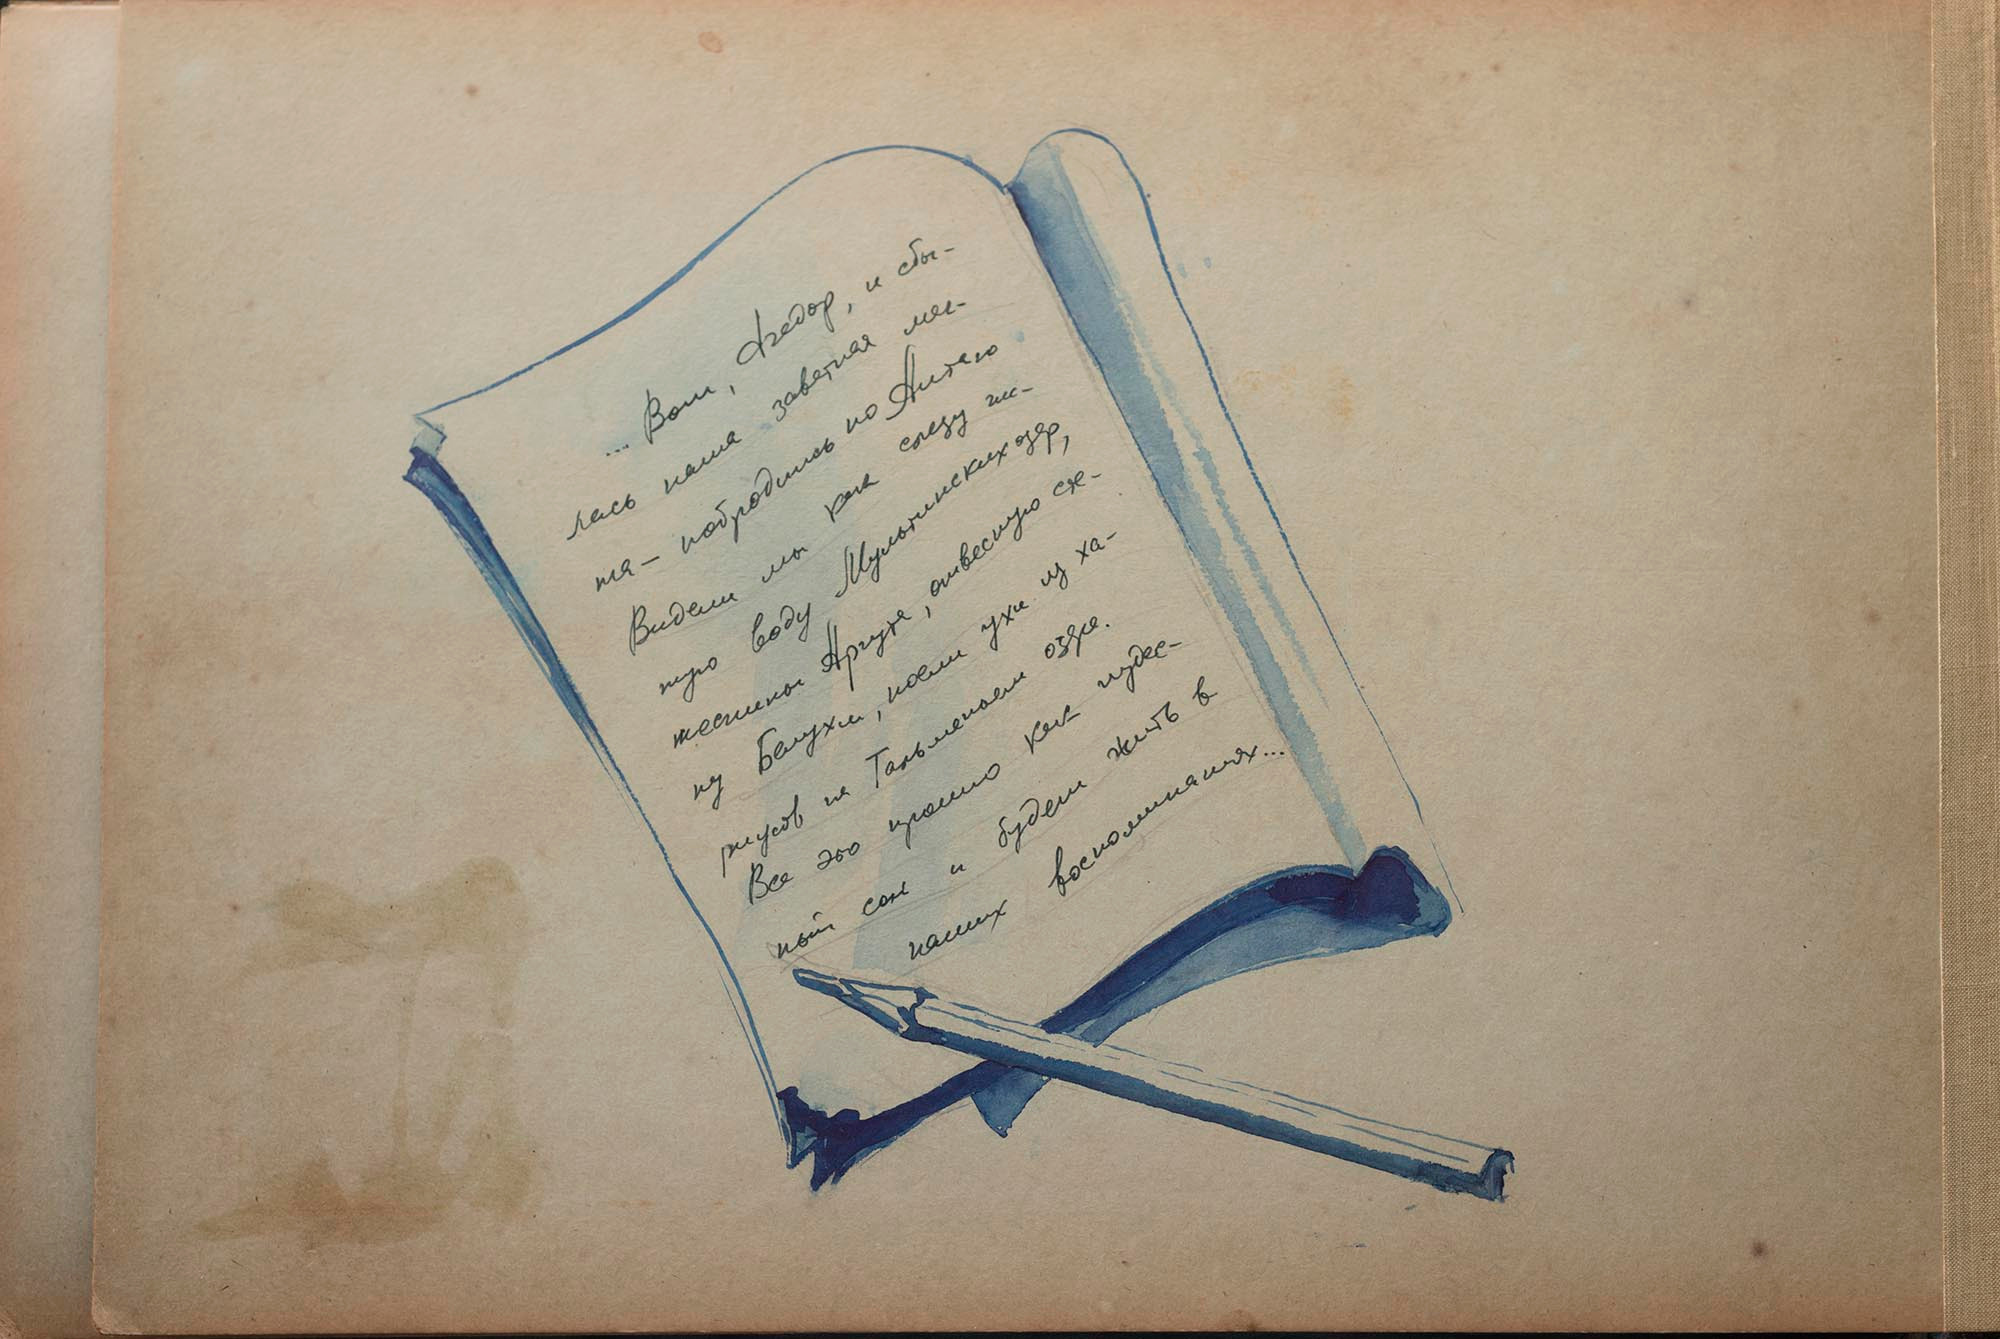 ... Вот, Агедор, и сбы-
лась наша заветная меч-
та — побродили по Алтаю
Видели мы как слезу чис-
тую воду Мультинских озер,
теснины Аргута, отвесную сте-
ну Белухи, поели ухи из ха-
риусов на Тальменьем озере.
Все это прошло как чудес-
ный сон и будет жить в
наших воспоминаниях...